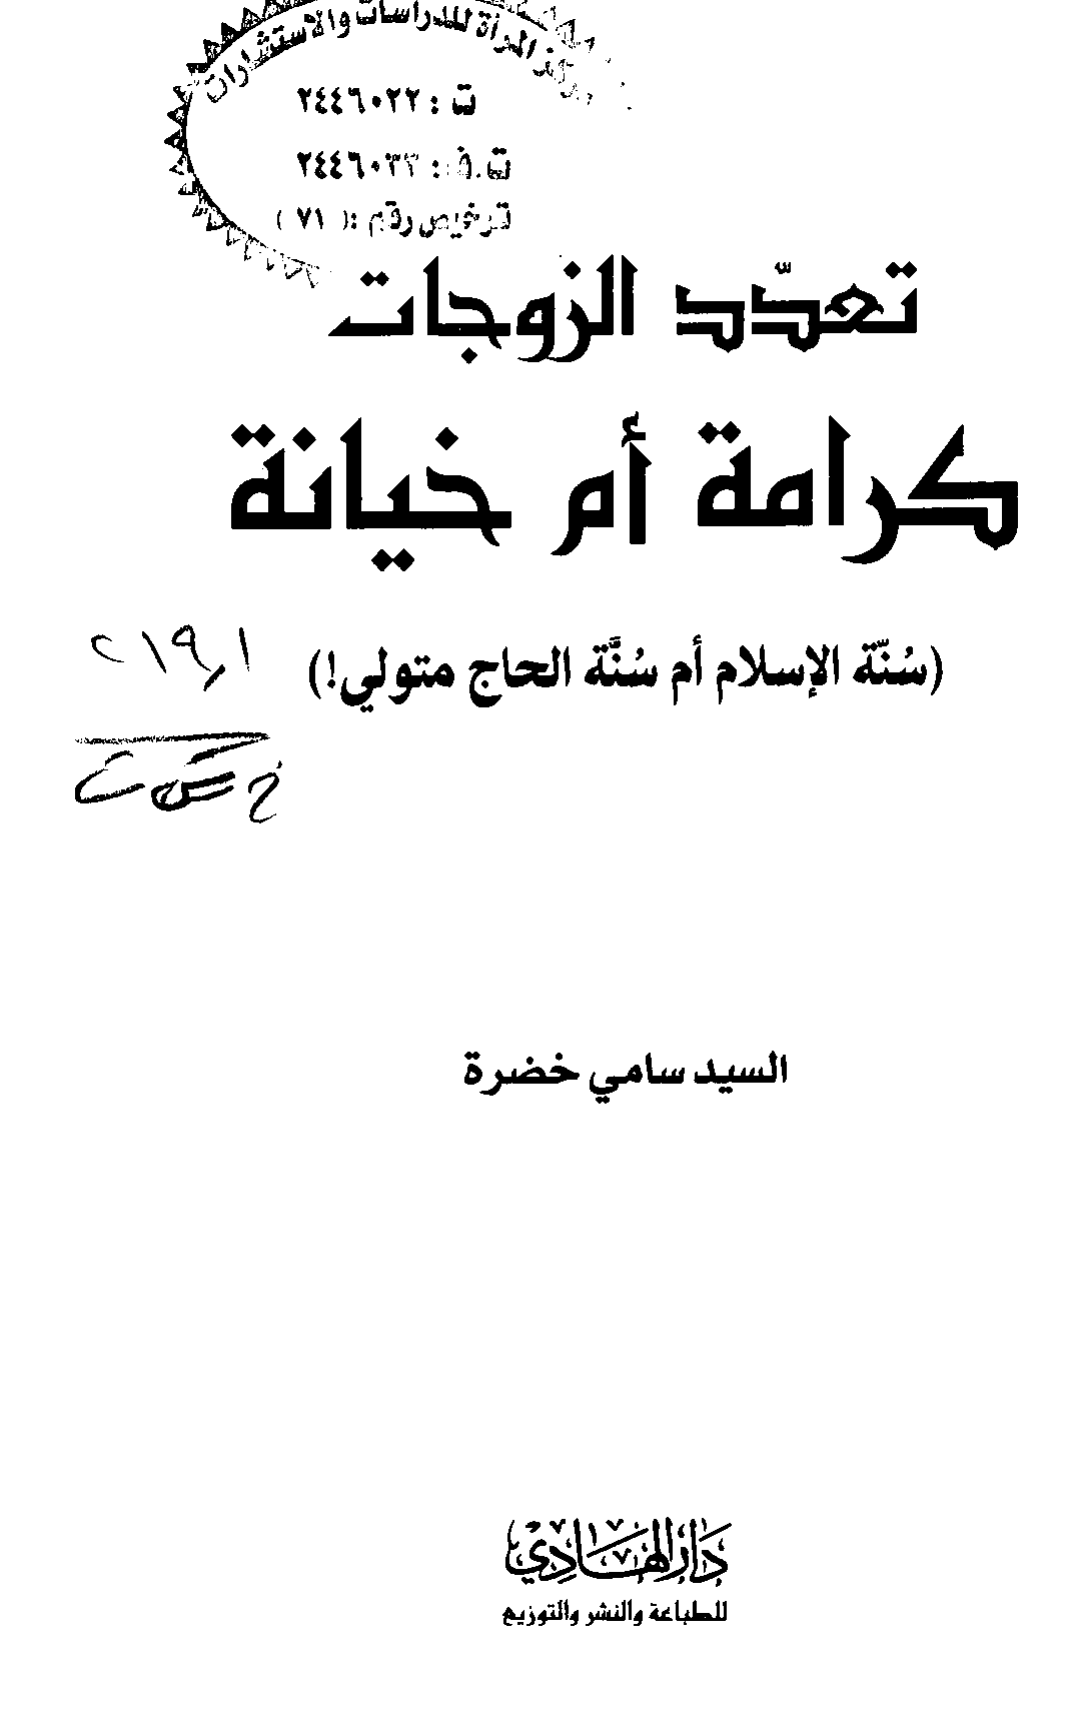 مركز المرأة للدراسات والاستشارات
ت : ٢٤٤٦٠٢٢
ت.ف : ٢٤٤٦٠٣٣
ترخيص رقم :( ٧١ )
تعدّد الزوجات
كرامة أم خيانة
(سُنّة الإسلام أم سُنَّة الحاج متولي!)
٢١٩,١
خ س ت
السيد سامي خضرة
دار الهادي
للطباعة والنشر والتوزيع